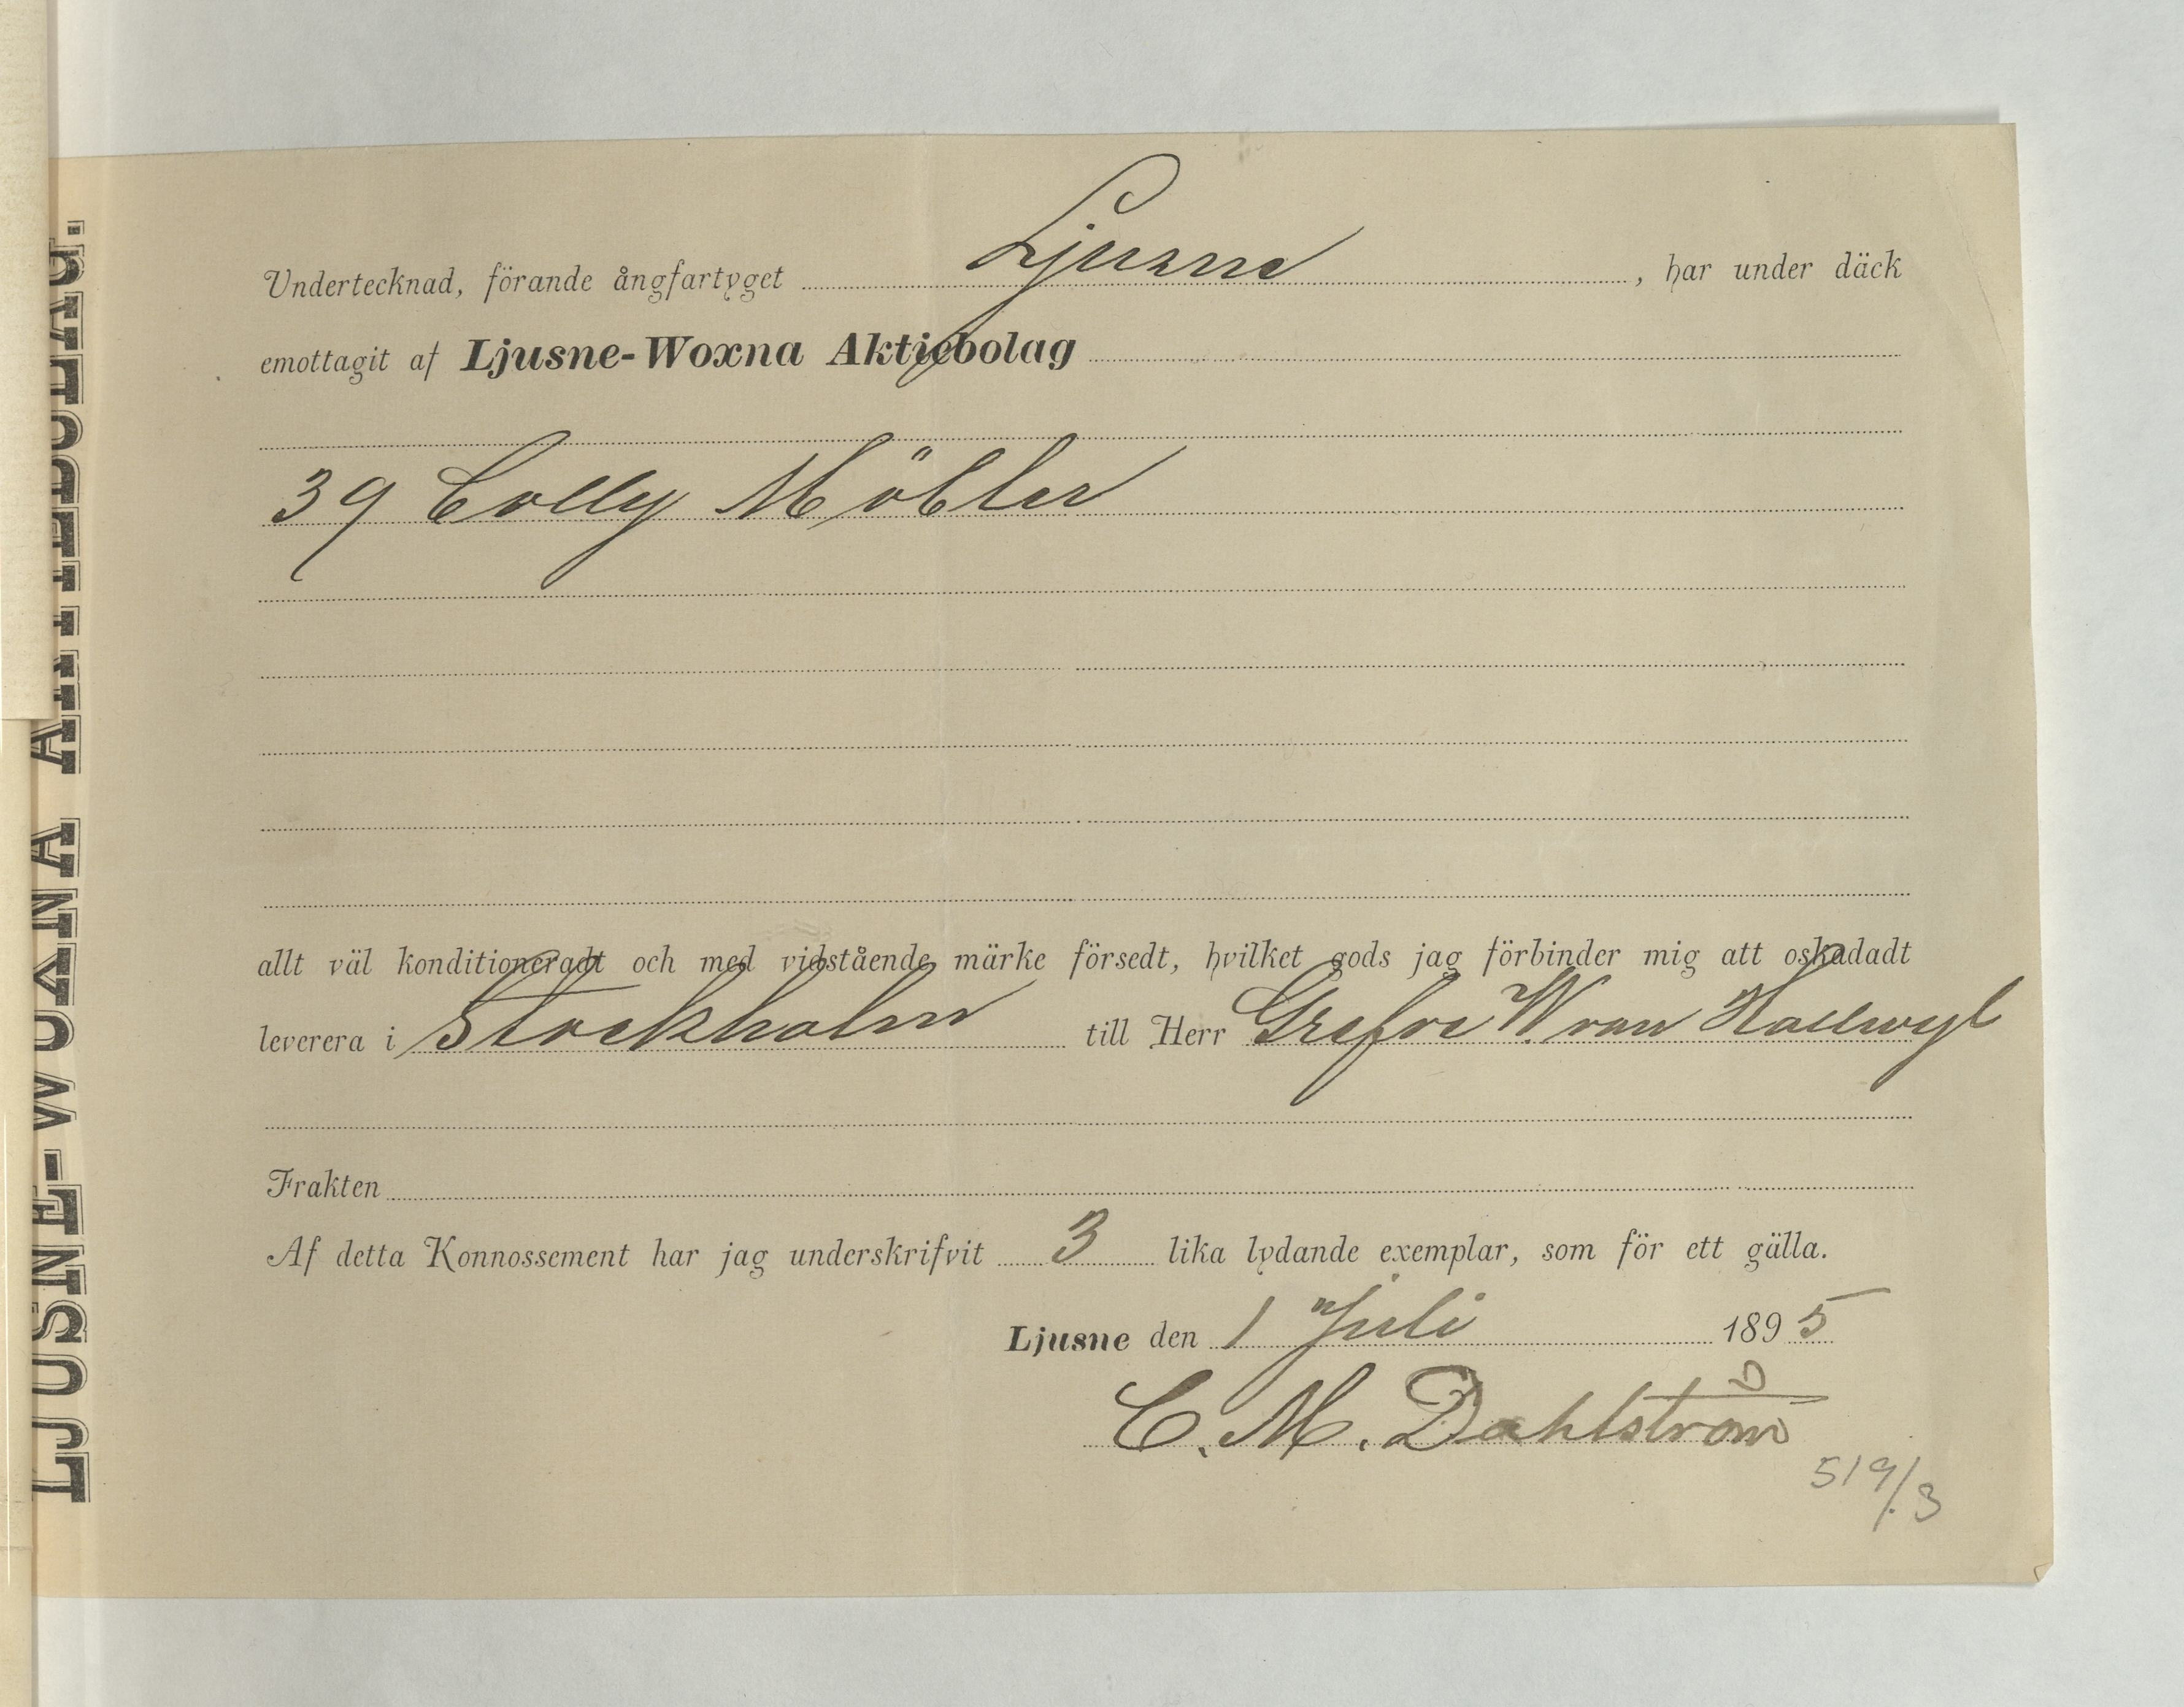 LJUSNE-WOXNA AKTIEBOLAG.
Undertecknad, förande ångfartyget Ljusne, har under däck
emottagit af Ljusne-Woxna Aktiebolag
39 Colly Möbler
allt väl konditioneradt och med vidstående märke försedt, hvilket gods jag förbinder mig att oskadadt
leverera i Stockholm till Herr Grefve W. von Hallwyl
Frakten
Af detta Konnossement har jag underskrifvit 3 lika lydande exemplar, som för ett gälla.
Ljusne den 1 Juli 1895
C. M. Dahlström
519/.3